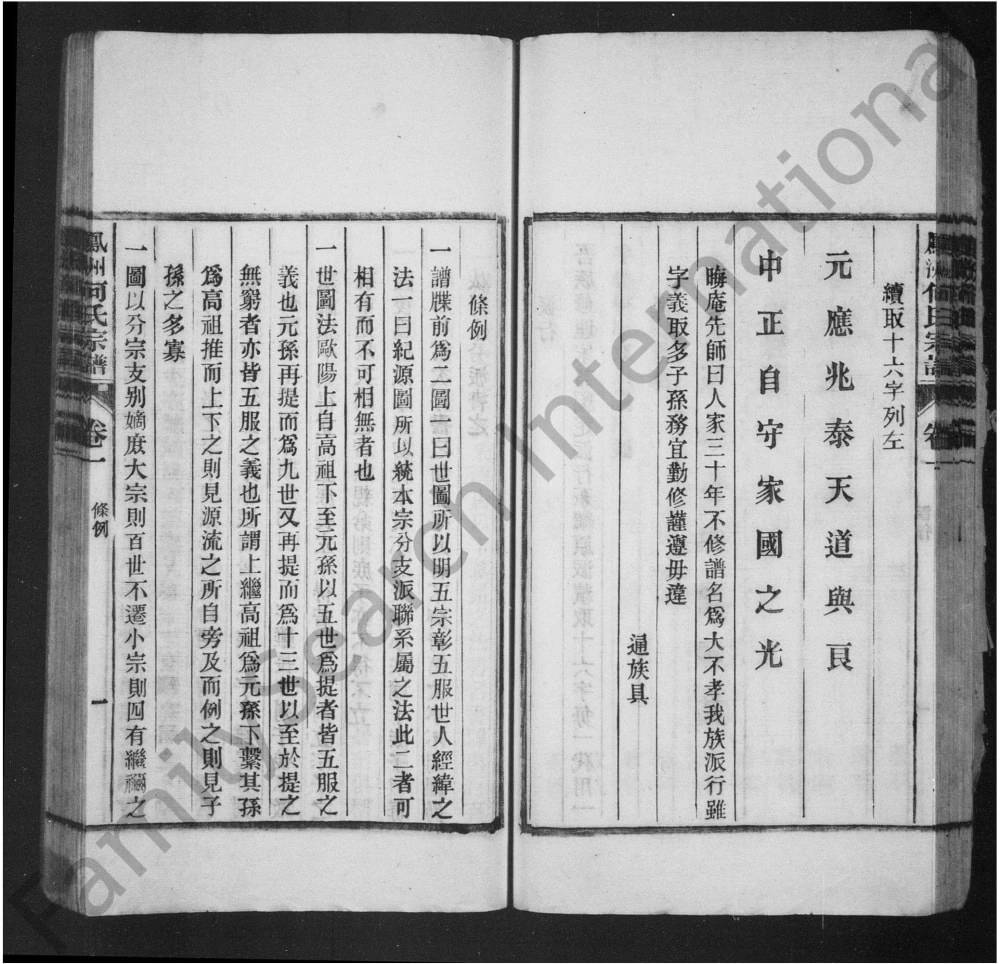 續取十六字列左
元應兆泰天道與良
中正自守家國之光
晦庵先師曰人家三十年不修譜名爲大不孝我族派行雖
字義取多子孫務宜勤修謹遵毋違
通族具
條例
一譜牒前爲二圖一曰世圖所以明五宗彰五服世人經緯之
法一曰紀源圖所以統本宗分支派聯系屬之法此二者可
相有而不可相無者也
一世圖法歐陽上自高祖下至元孫以五世爲提者皆五服之
義也元孫再提而爲九世又再提而爲十三世以至於提之
無窮者亦皆五服之義也所謂上繼高祖爲元孫下繫其孫
爲高祖推而上下之則見源流之所自旁及而例之則見子
孫之多寡
一圖以分宗支别嫡庶大宗則百世不遷小宗則四有繼禰之
鳳洲何氏宗譜
卷一
條例
一
Family Search International